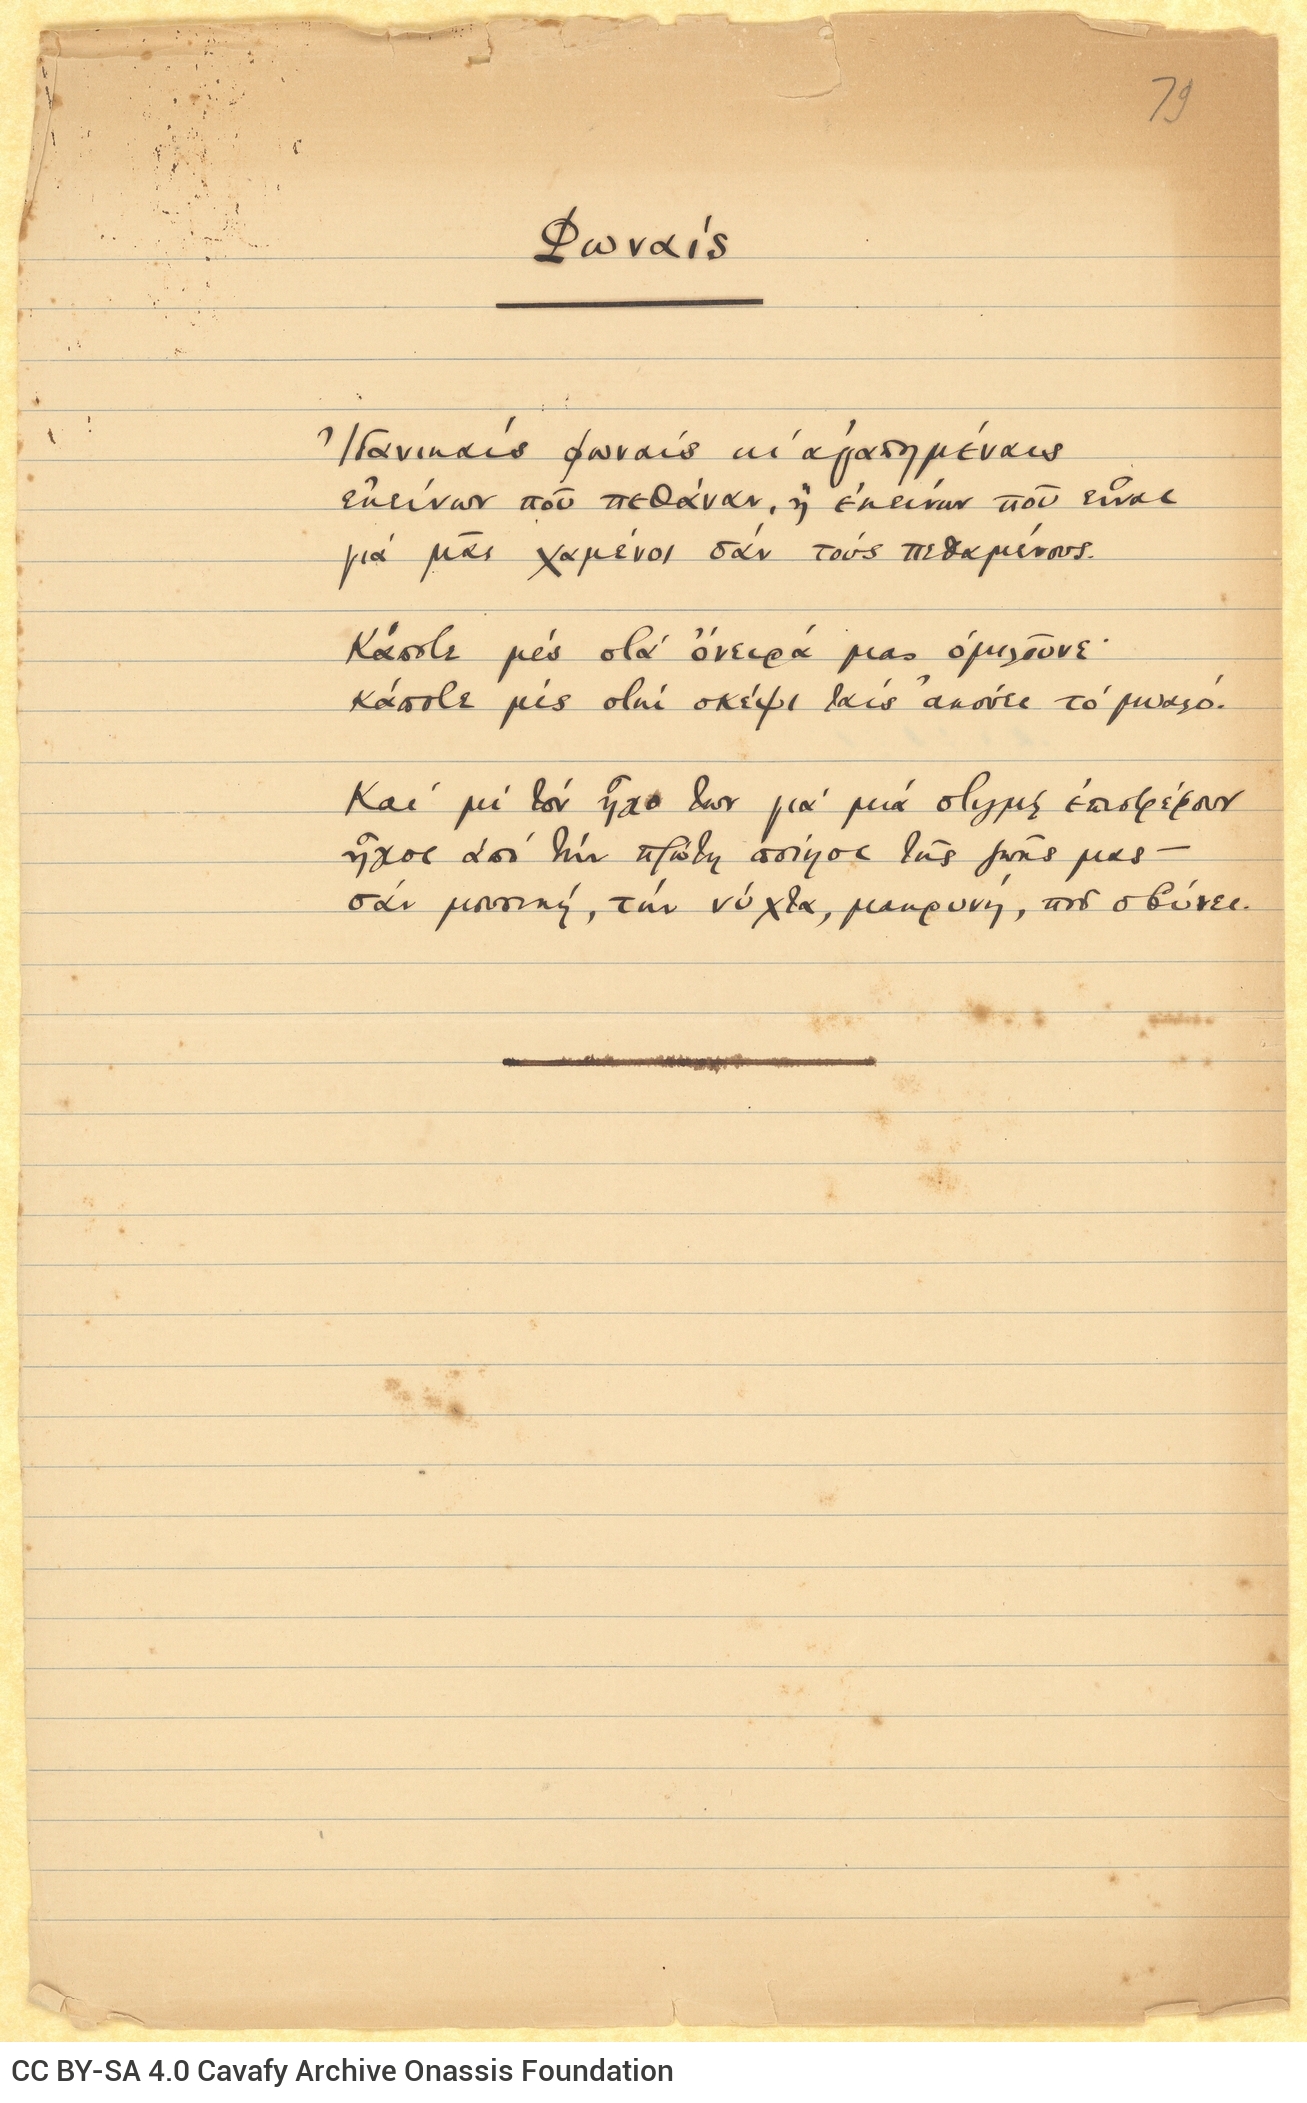 79
Φωναίς
Ἰδανικαίς φωναίς κι' ἀγαπημέναις
ἐκείνων ποῦ πεθάναν, ἢ ἐκείνων ποῦ εἶναι
γιὰ μᾶς χαμένοι σὰν τοὺς πεθαμένους.
Κάποτε μὲς στὰ ὄνειρά μας ὁμιλοῦνε·
κάποτε μὲς στὴ σκέψι ταὶς ἀκούει τὸ μυαλό.
Καὶ μὲ τὸν ἦχο των γιὰ μιὰ στιγμὴ ἐπιστρέφουν
ἦχοι ἀπὸ τὴν πρώτη ποίησι τῆς ζωῆς μας —
σὰν μουσική, τὴν νύχτα, μακρυνή, ποῦ σβύνει.
CC BY-SA 4.0 Cavafy Archive Onassis Foundation